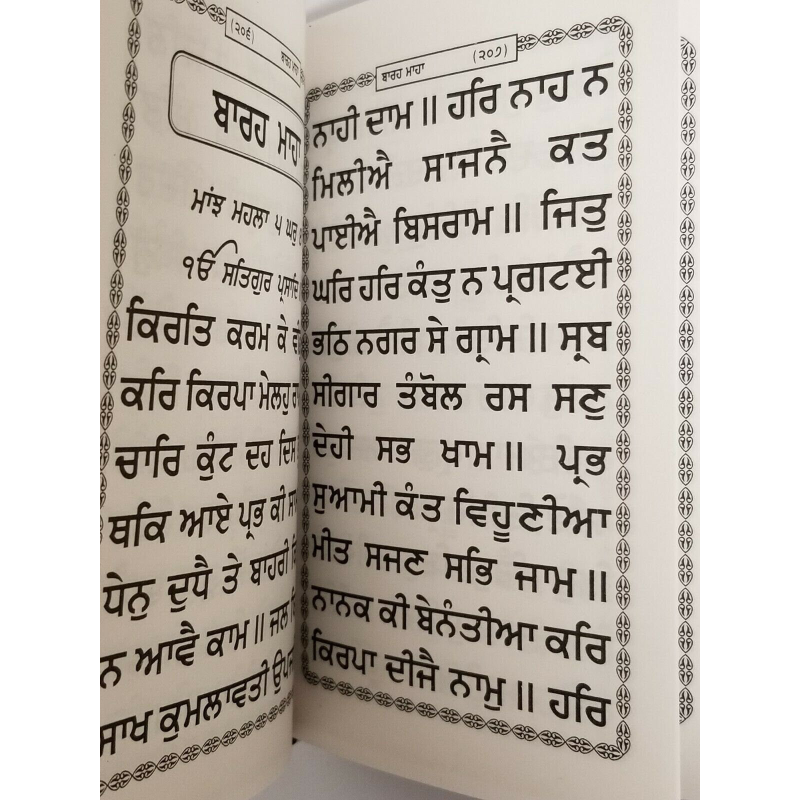 (੨੦੬) ਬਾਰਹ ਮਾਹਾ
ਬਾਰਹ ਮਾਹਾ
ਮਾਂਝ ਮਹਲਾ ੫ ਘਰੁ
ੴ ਸਤਿਗੁਰ ਪ੍ਰਸਾਦਿ
ਕਿਰਤਿ ਕਰਮ ਕੇ
ਕਰਿ ਕਿਰਪਾ ਮੇਲਹੁ
ਚਾਰਿ ਕੁੰਟ ਦਹ ਦਿਸ
ਥਕਿ ਆਏ ਪ੍ਰਭ ਕੀ
ਧੇਨੁ ਦੁਧੈ ਤੇ ਬਾਹਰੀ
ਨ ਆਵੈ ਕਾਮ॥ ਜਲ
ਸਾਖ ਕੁਮਲਾਵਤੀ
ਬਾਰਹ ਮਾਹਾ (੨੦੭)
ਨਾਹੀ ਦਾਮ॥ ਹਰਿ ਨਾਹ ਨ
ਮਿਲੀਐ ਸਾਜਨੈ ਕਤ
ਪਾਈਐ ਬਿਸਰਾਮ॥ ਜਿਤੁ
ਘਰਿ ਹਰਿ ਕੰਤੁ ਨ ਪ੍ਰਗਟਈ
ਭਠਿ ਨਗਰ ਸੇ ਗ੍ਰਾਮ॥ ਸ੍ਰਬ
ਸੀਗਾਰ ਤੰਬੋਲ ਰਸ ਸਣੁ
ਦੇਹੀ ਸਭ ਖਾਮ॥ ਪ੍ਰਭ
ਸੁਆਮੀ ਕੰਤ ਵਿਹੂਣੀਆ
ਮੀਤ ਸਜਣ ਸਭਿ ਜਾਮ॥
ਨਾਨਕ ਕੀ ਬੇਨੰਤੀਆ ਕਰਿ
ਕਿਰਪਾ ਦੀਜੈ ਨਾਮੁ॥ ਹਰਿ